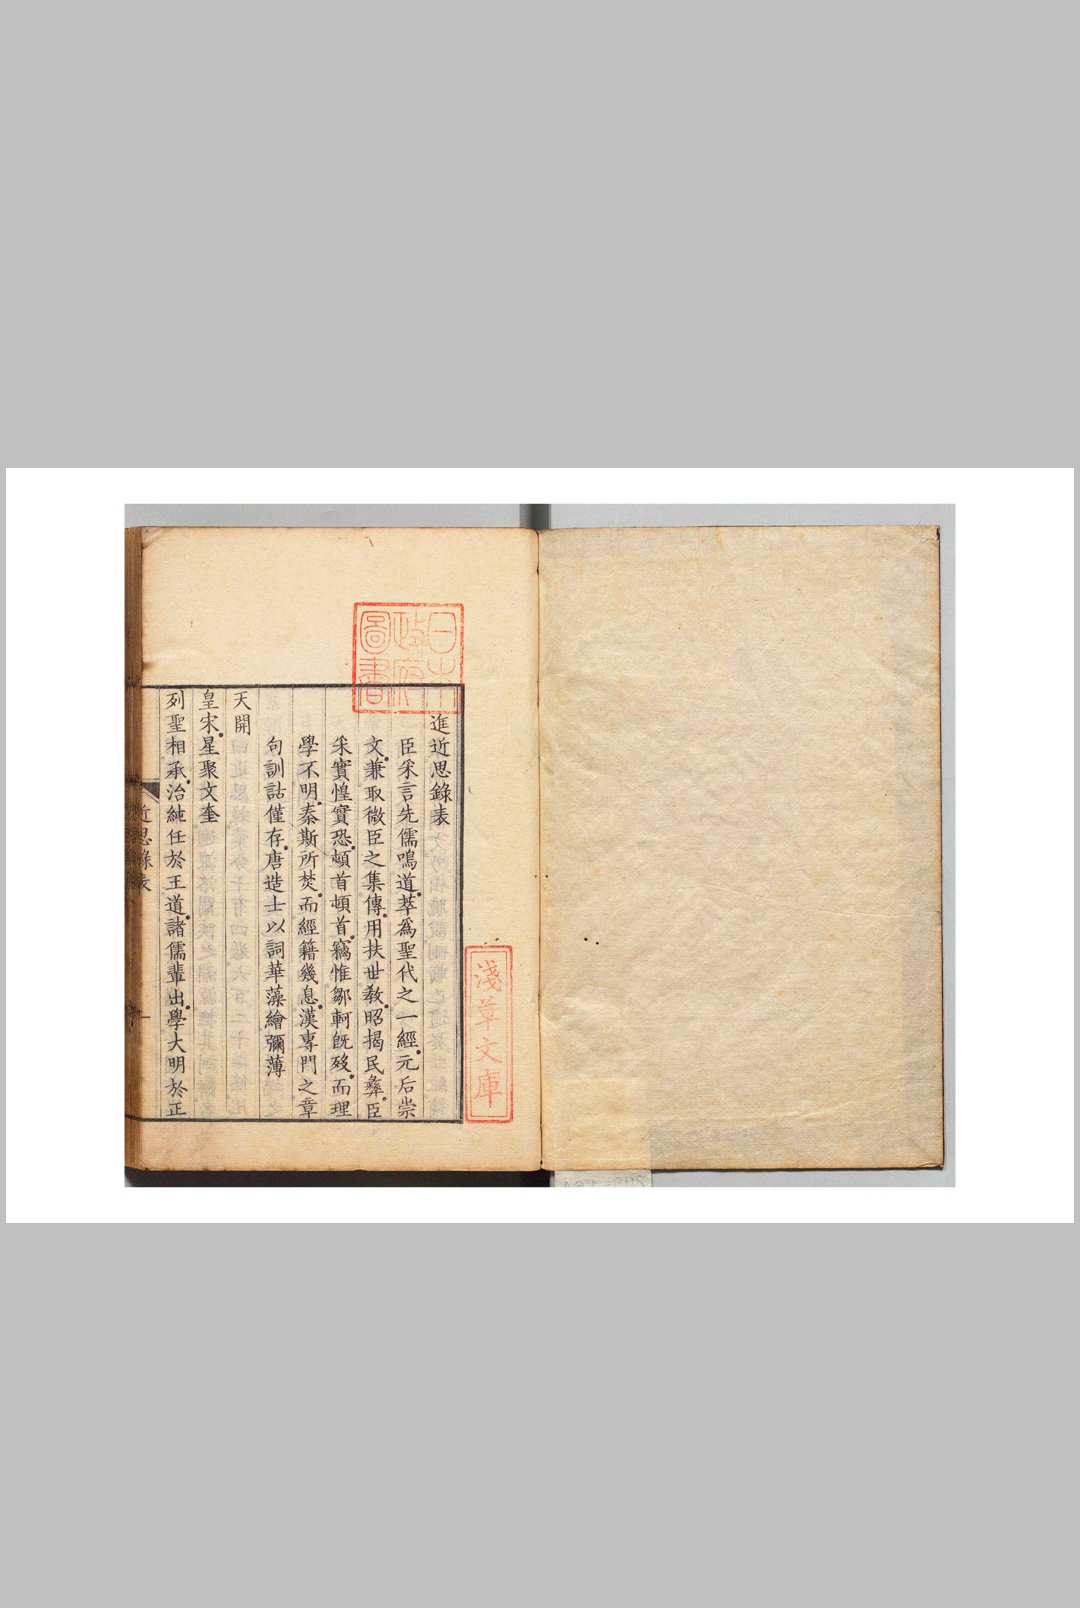 進近思錄表
臣采言先儒鳴道萃為聖代之一經元后崇
文兼取微臣之集傳用扶世敎昭揭民彝臣
采實惶實恐頓首頓首竊惟鄒軻旣歿而理
學不明秦斯所焚而經籍幾息漢專門之章
句訓詁僅存唐造士以詞華藻繪彌薄
天開
皇宋星聚文奎
列聖相承治純任於王道諸儒輩出學大明於正
近思錄表
一
日本
政府
圖書
淺草文庫